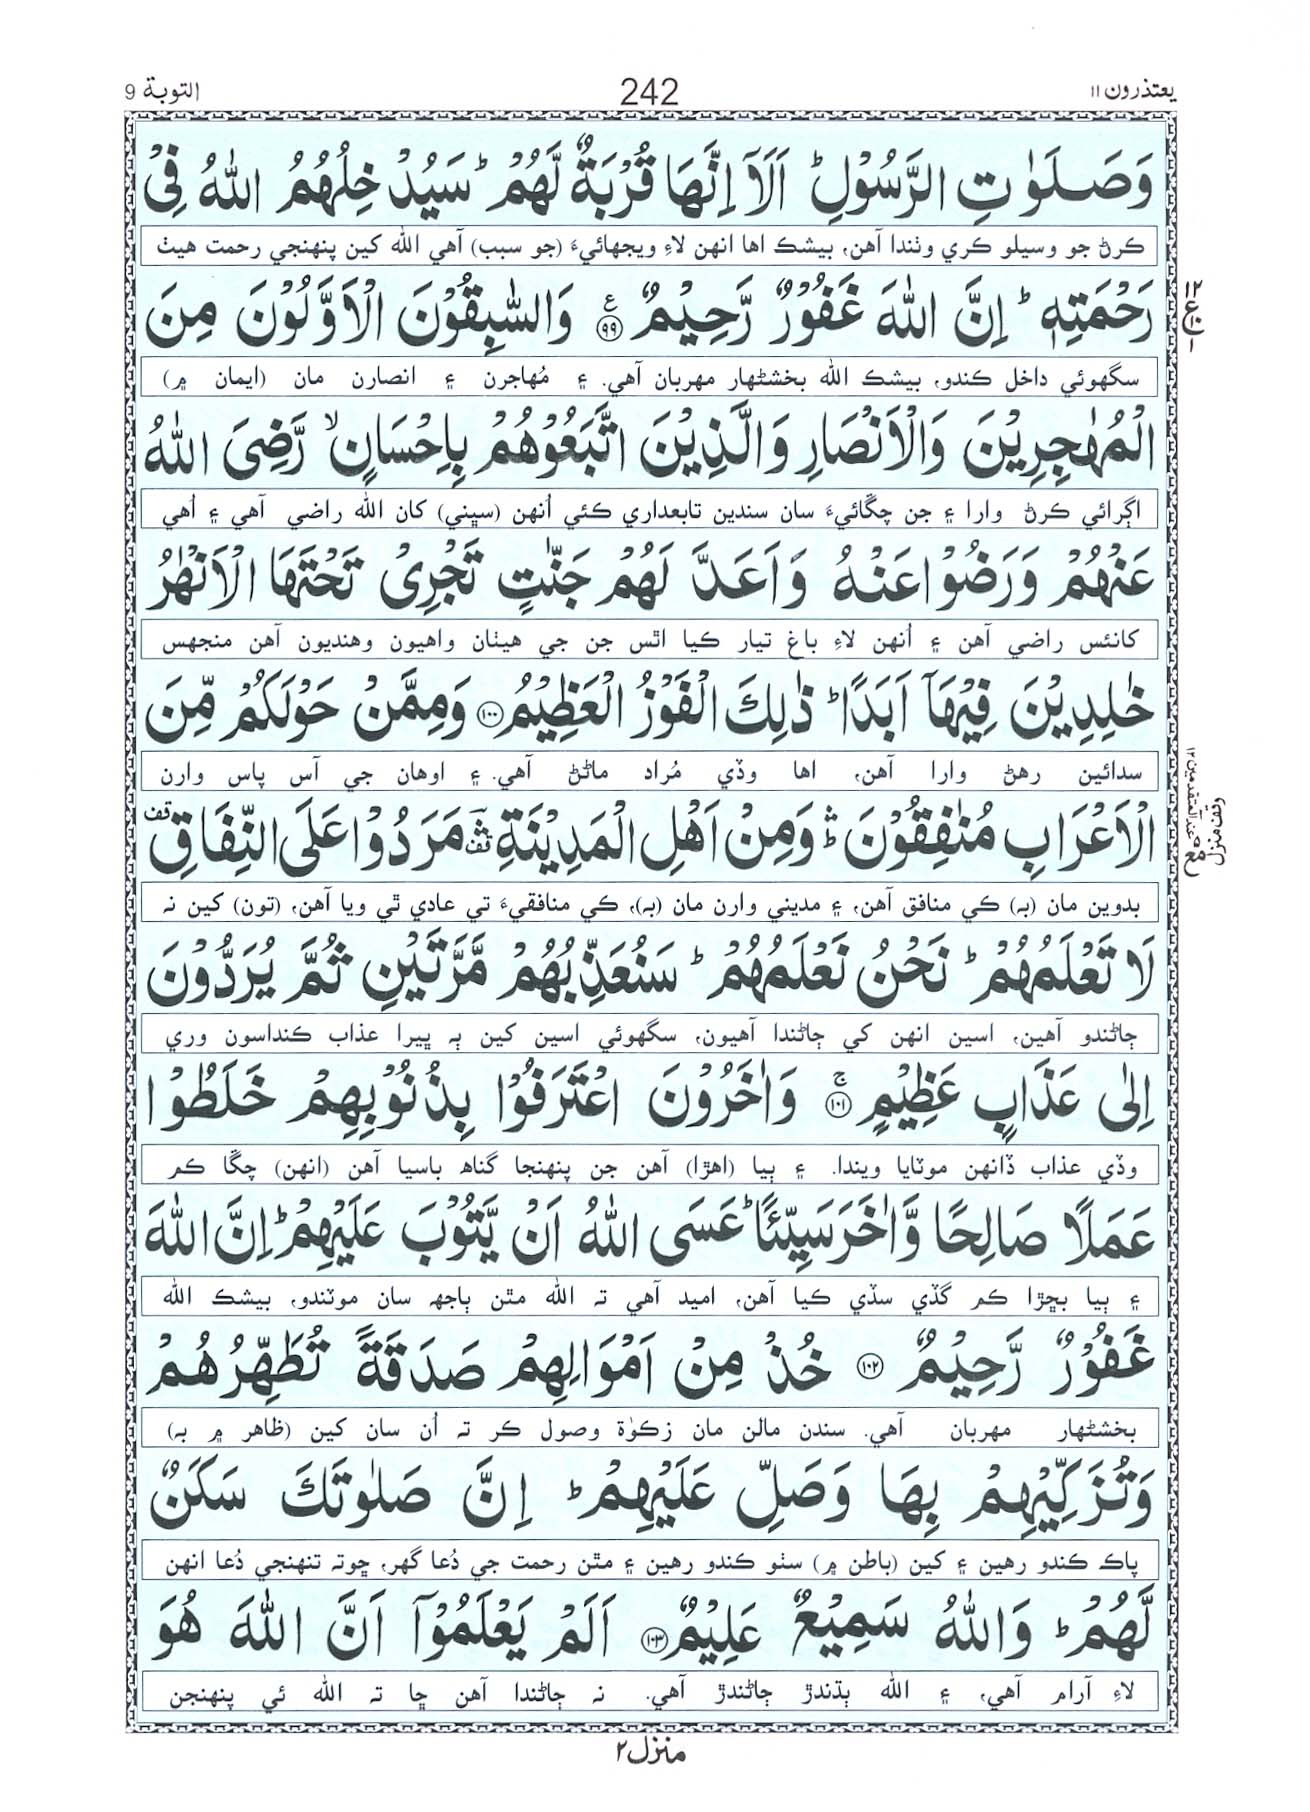 يعتذرون ۱۱
242
التوبة 9
وَصَلَوٰتِ الرَّسُوْلِ ؕ اَلَاۤ اِنَّهَا قُرْبَةٌ لَّهُمْ ؕ سَيُدْخِلُهُمُ اللّٰهُ فِىْ
ڪرڻ جو وسيلو ڪري وٺندا آهن، بيشڪ اها انهن لاءِ ويجهائيءَ (جو سبب) آهي الله کين پنهنجي رحمت هيٺ
رَحْمَتِهٖ ؕ اِنَّ اللّٰهَ غَفُوْرٌ رَّحِيْمٌ ۹۹ ع وَالسّٰبِقُوْنَ الْاَوَّلُوْنَ مِنَ
۱۲ ع ۱۰ ۱
سگهوئي داخل ڪندو، بيشڪ الله بخشڻهار مهربان آهي. ۽ مُهاجرن ۽ انصارن مان (ايمان ۾)
الْمُهٰجِرِيْنَ وَالْاَنْصَارِ وَالَّذِيْنَ اتَّبَعُوْهُمْ بِاِحْسَانٍ ۙ رَّضِىَ اللّٰهُ
اڳرائي ڪرڻ وارا ۽ جن چڱائيءَ سان سندين تابعداري ڪئي اُنهن (سڀني) کان الله راضي آهي ۽ اُهي
عَنْهُمْ وَرَضُوْا عَنْهُ وَاَعَدَّ لَهُمْ جَنّٰتٍ تَجْرِىْ تَحْتَهَا الْاَنْهٰرُ
کانئس راضي آهن ۽ اُنهن لاءِ باغ تيار ڪيا اٿس جن جي هيٺان واهيون وهنديون آهن منجهس
خٰلِدِيْنَ فِيْهَاۤ اَبَدًا ؕ ذٰلِكَ الْفَوْزُ الْعَظِيْمُ ۱۰۰ وَمِمَّنْ حَوْلَكُمْ مِّنَ
سدائين رهڻ وارا آهن، اها وڏي مُراد ماڻڻ آهي. ۽ اوهان جي آس پاس وارن
الْاَعْرَابِ مُنٰفِقُوْنَ ۛؕ وَمِنْ اَهْلِ الْمَدِيْنَةِ ۛؔ مَرَدُوْا عَلَى النِّفَاقِ قف
وقف منزل
بدوين مان (به) ڪي منافق آهن، ۽ مديني وارن مان (به)، ڪي منافقيءَ تي عادي ٿي ويا آهن، (تون) کين نہ
لَا تَعْلَمُهُمْ ؕ نَحْنُ نَعْلَمُهُمْ ؕ سَنُعَذِّبُهُمْ مَّرَّتَيْنِ ثُمَّ يُرَدُّوْنَ
ڄاڻندو آهين، اسين انهن کي ڄاڻندا آهيون، سگهوئي اسين کين ٻہ ڀيرا عذاب ڪنداسون وري
اِلٰى عَذَابٍ عَظِيْمٍ ۱۰۱ ج وَاٰخَرُوْنَ اعْتَرَفُوْا بِذُنُوْبِهِمْ خَلَطُوْا
وڏي عذاب ڏانهن موٽايا ويندا. ۽ ٻيا (اهڙا) آهن جن پنهنجا گناه باسيا آهن (انهن) چڱا ڪم
عَمَلًا صَالِحًا وَّاٰخَرَ سَيِّئًا ؕ عَسَى اللّٰهُ اَنْ يَّتُوْبَ عَلَيْهِمْ ؕ اِنَّ اللّٰهَ
۽ ٻيا بڇڙا ڪم گڏي سڏي ڪيا آهن، اميد آهي تہ الله مٿن ٻاجهہ سان موٽندو، بيشڪ الله
غَفُوْرٌ رَّحِيْمٌ ۱۰۲ خُذْ مِنْ اَمْوَالِهِمْ صَدَقَةً تُطَهِّرُهُمْ
بخشڻهار مهربان آهي. سندن مالن مان زڪوٰة وصول ڪر تہ اُن سان کين (ظاهر ۾ به)
وَتُزَكِّيْهِمْ بِهَا وَصَلِّ عَلَيْهِمْ ؕ اِنَّ صَلٰوتَكَ سَكَنٌ
پاڪ ڪندو رهين ۽ کين (باطن ۾) سٺو ڪندو رهين ۽ مٿن رحمت جي دُعا گهر، ڇوتہ تنهنجي دُعا انهن
لَّهُمْ ؕ وَاللّٰهُ سَمِيْعٌ عَلِيْمٌ ۱۰۳ اَلَمْ يَعْلَمُوْۤا اَنَّ اللّٰهَ هُوَ
لاءِ آرام آهي، ۽ الله ٻڌندڙ ڄاڻندڙ آهي. نہ ڄاڻندا آهن ڇا تہ الله ئي پنهنجن
منزل ۲